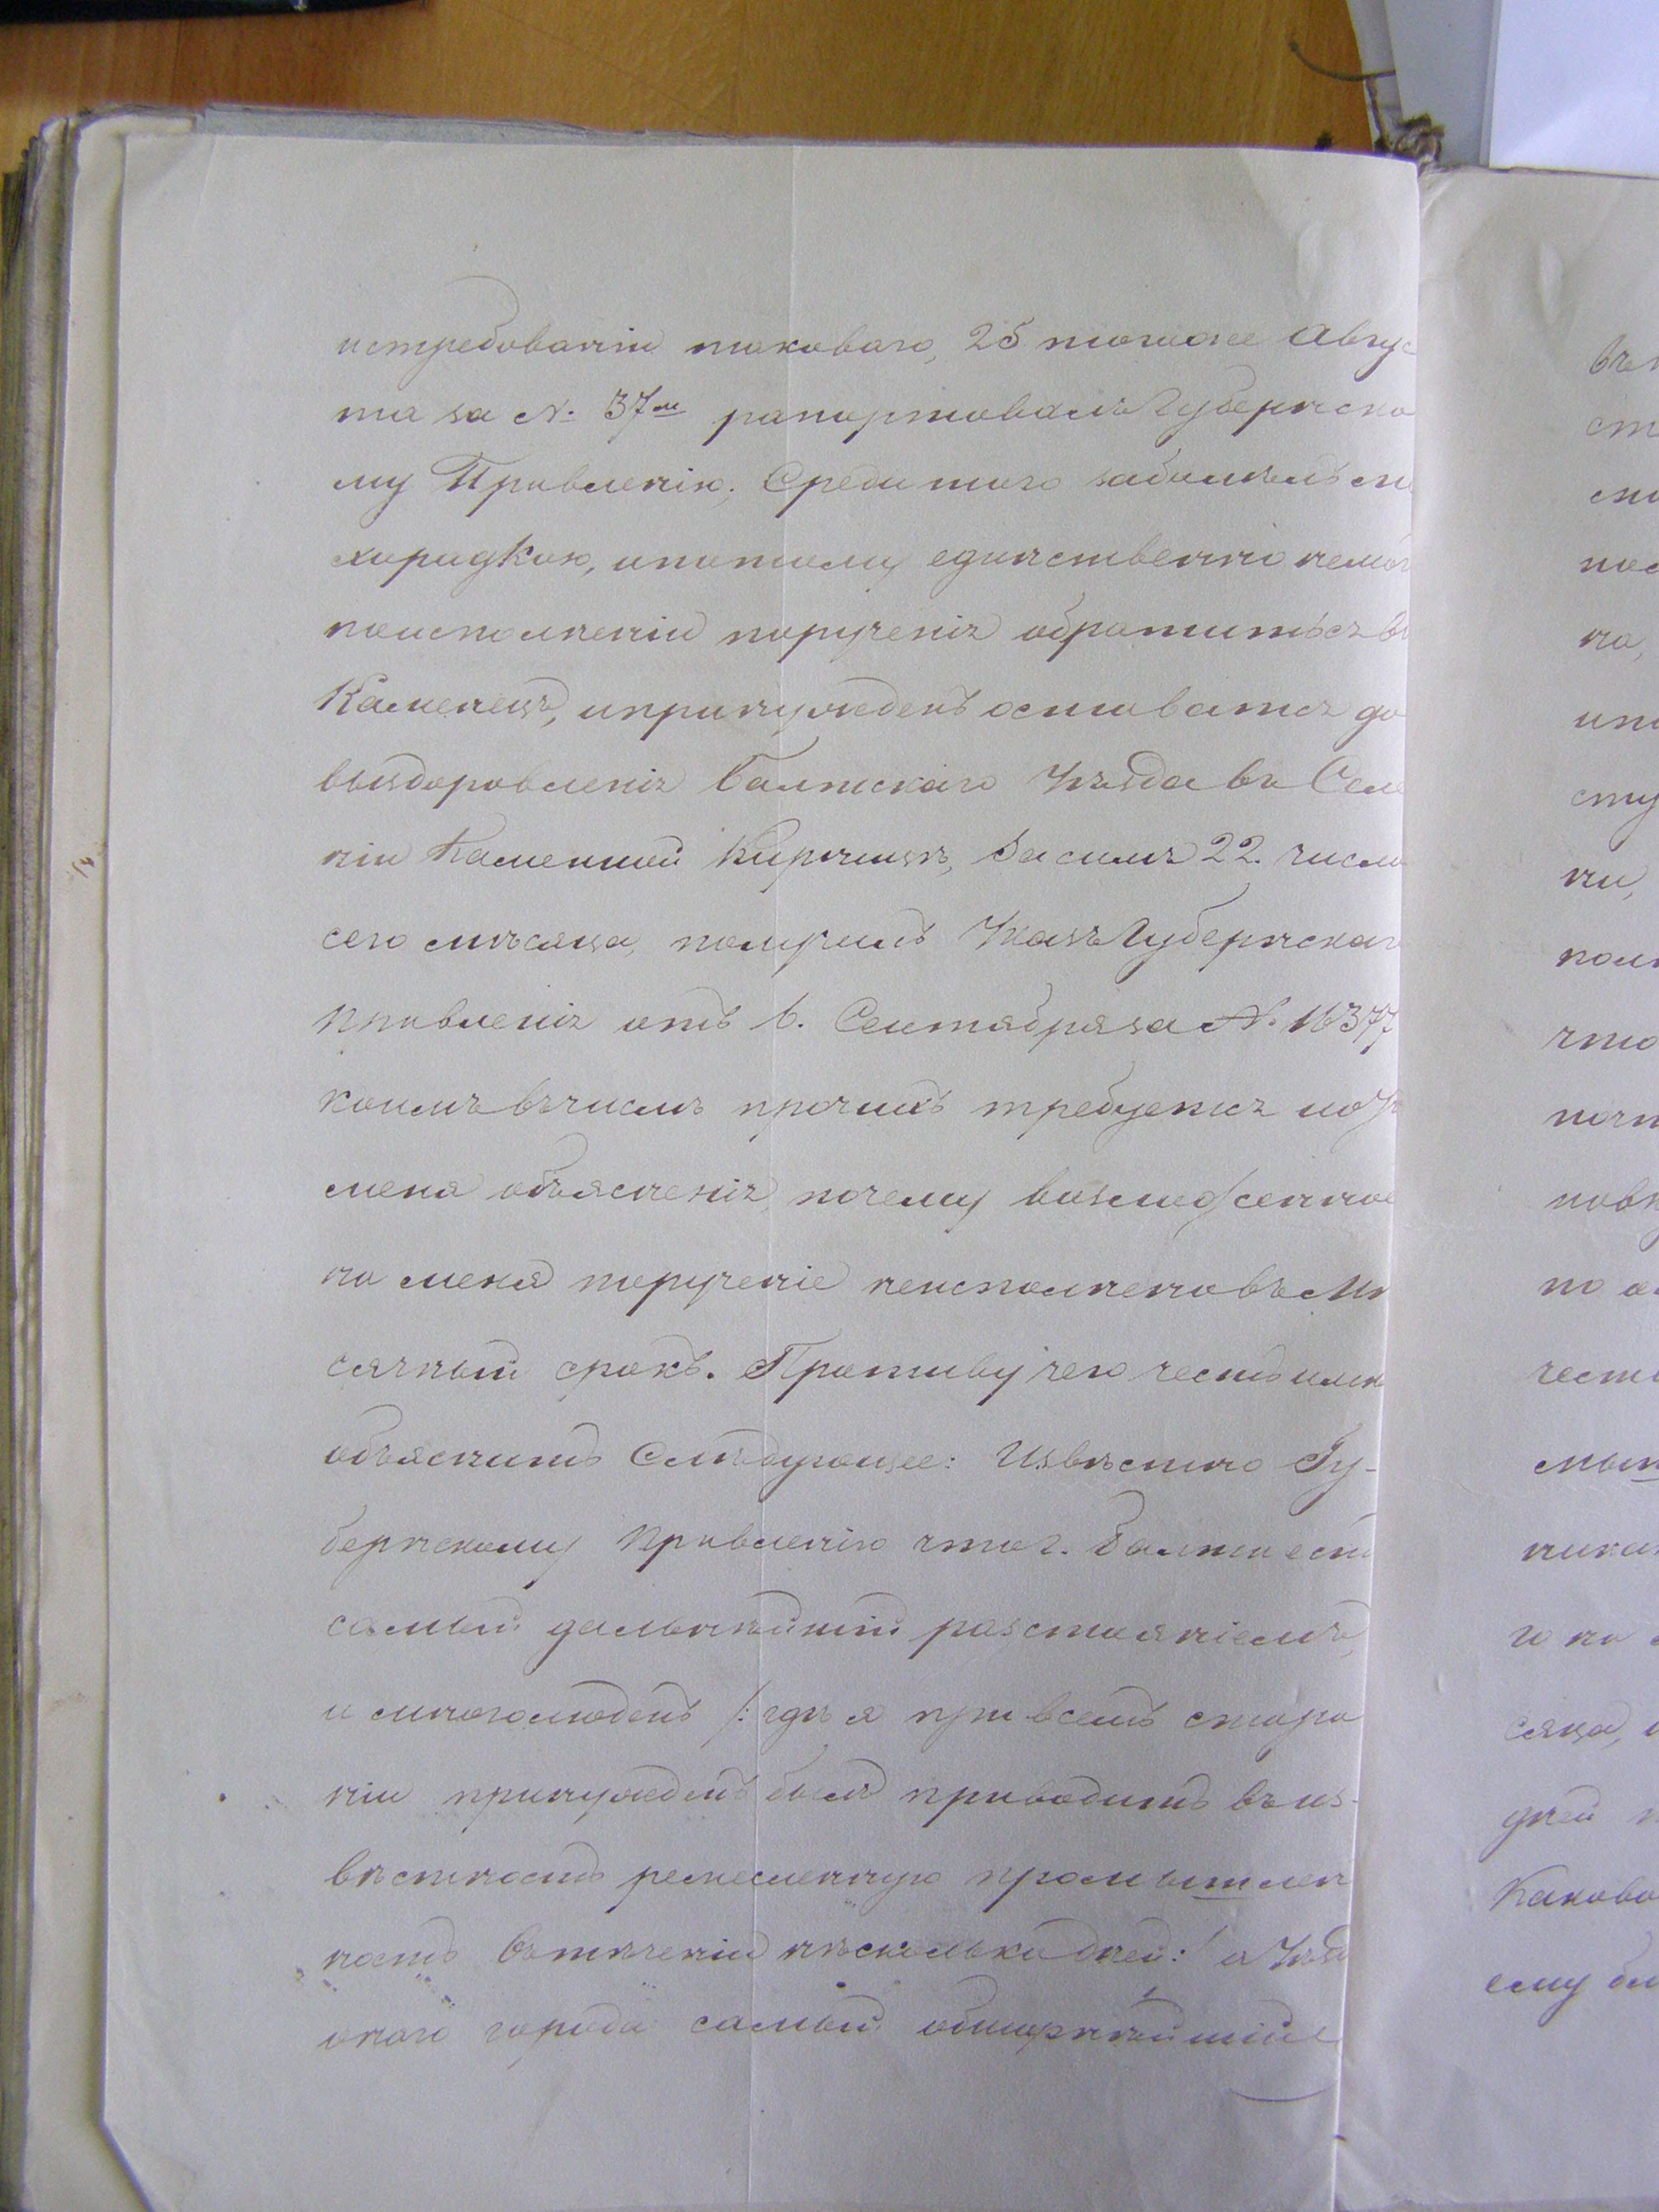 истребованіи таковаго, 25 тогоже Авгус
та за №. 37м рапортовалъ Губернско
му Правленію. Среди того заболѣлъ ли
хорадкою, ипотому единственно немог
поисполненіи порученія обратиться въ
Каменецъ, ипринужденъ оставатся до
выздоровленія Балтскаго Уѣзда въ Селе
ніи Каменной Кирницѣ, Засимъ 22. числа
сего мѣсяца, получилъ Указъ Губернскаго
Правленія отъ 6. Сентября за №. 16377
коимъ въчислѣ прочихъ требуется
меня объясненія, почему возложенное
на меня порученіе неисполнено въ Мѣ
сячный срокъ. Противу чего честь имѣю
объяснить Слѣдующее: Извѣстно Гу-
бернскому Правленію что г. Балта есть
самый дальнѣйшій разстояніемъ,
и многолюденъ /: гдѣ я при всемъ стара
ніи принужденъ былъ приводить въ из-
вѣстность ремесленную промышлен
ность въ теченіи нѣсколько дней :/ а Уѣздъ
онаго города самый обширнѣйшій
въ
ст
сту
пол
что
почт
по
чест
мы
го на
сяца,
дней
Каково
ему